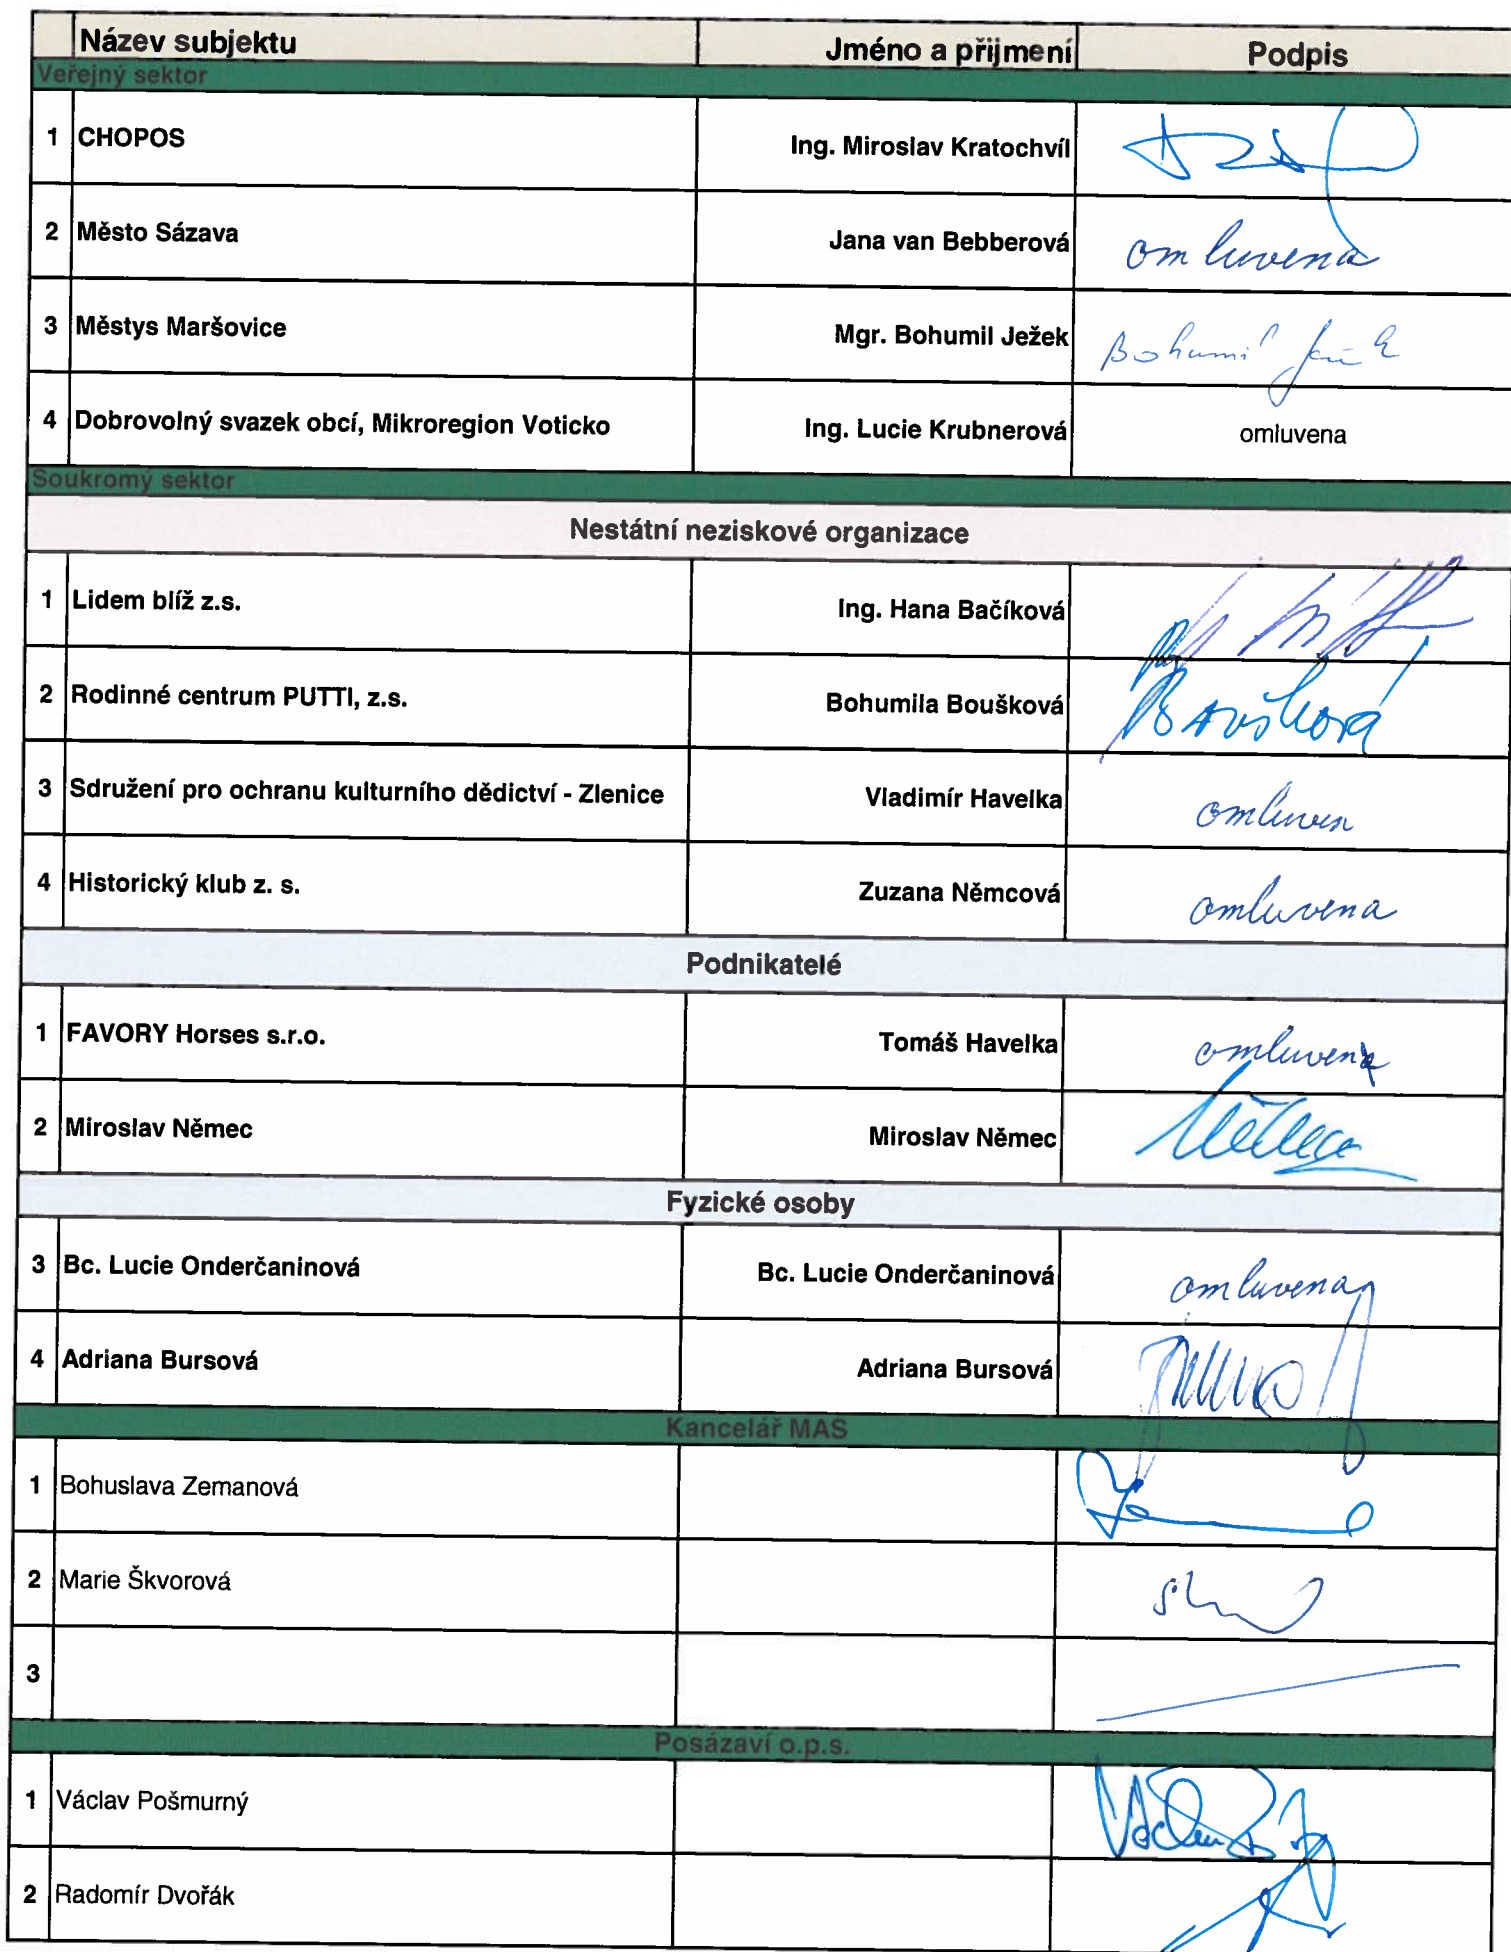 Název subjektu Jméno a přijmení Podpis
Veřejný sektor
1 CHOPOS Ing. Miroslav Kratochvíl
2 Město Sázava Jana van Bebberová omluvena
3 Městys Maršovice Mgr. Bohumil Ježek Bohumil Ježek
4 Dobrovolný svazek obcí, Mikroregion Voticko Ing. Lucie Krubnerová omluvena
Soukromý sektor
Nestátní neziskové organizace
1 Lidem blíž z.s. Ing. Hana Bačíková
2 Rodinné centrum PUTTI, z.s. Bohumila Boušková Boušková
3 Sdružení pro ochranu kulturního dědictví - Zlenice Vladimír Havelka omluven
4 Historický klub z. s. Zuzana Němcová omluvena
Podnikatelé
1 FAVORY Horses s.r.o. Tomáš Havelka omluven
2 Miroslav Němec Miroslav Němec
Fyzické osoby
3 Bc. Lucie Onderčaninová Bc. Lucie Onderčaninová omluvena
4 Adriana Bursová Adriana Bursová
Kancelář MAS
1 Bohuslava Zemanová
2 Marie Škvorová
3
Posázaví o.p.s.
1 Václav Pošmurný
2 Radomír Dvořák